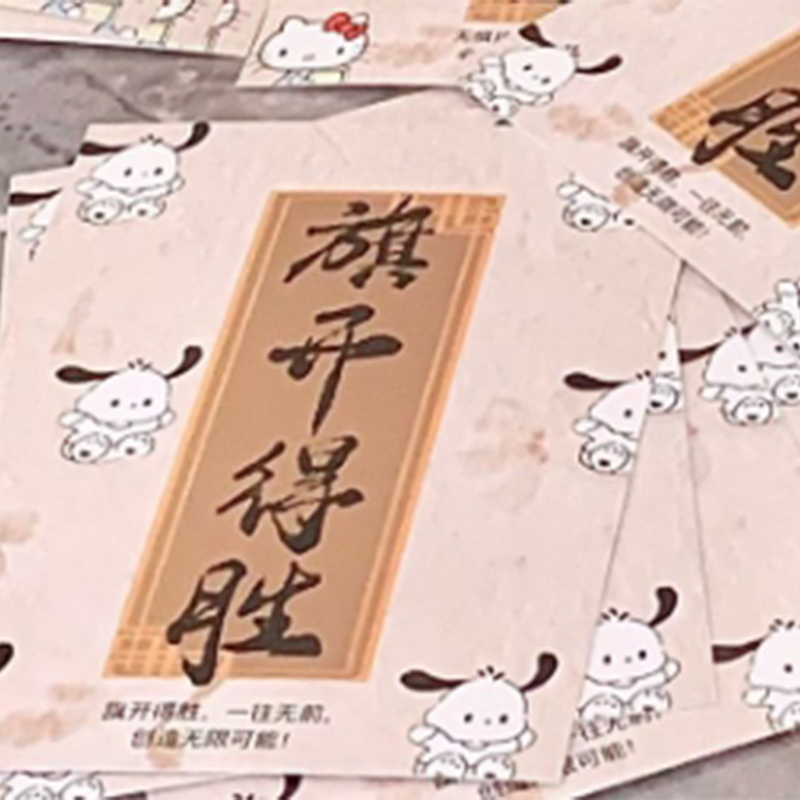 旗开得胜
旗开得胜，一往无前，
创造无限可能！
胜
旗开得胜，一往无前，
创造无限可能！
往无前，
限可能！